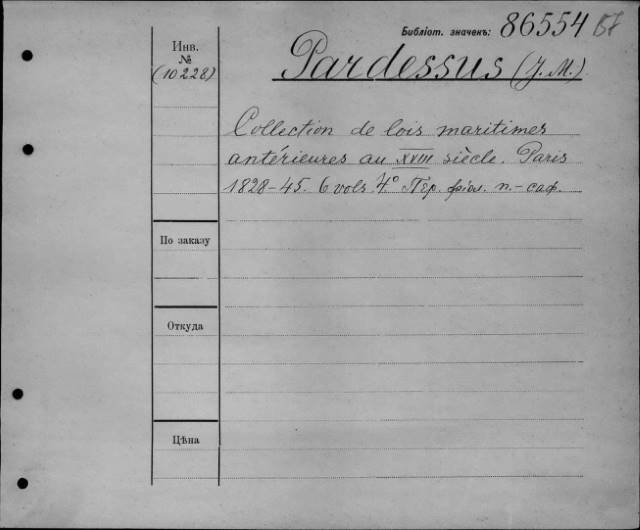 Библіот. значекъ: 86554 Б7
Инв.
№
(10228)
Pardessus (J. M.)
Collection de lois maritimes
antérieures au XVIII siècle. Paris
1828-45. 6 vols 4° Пер. фіол. п.-саф.
По заказу
Откуда
Цѣна